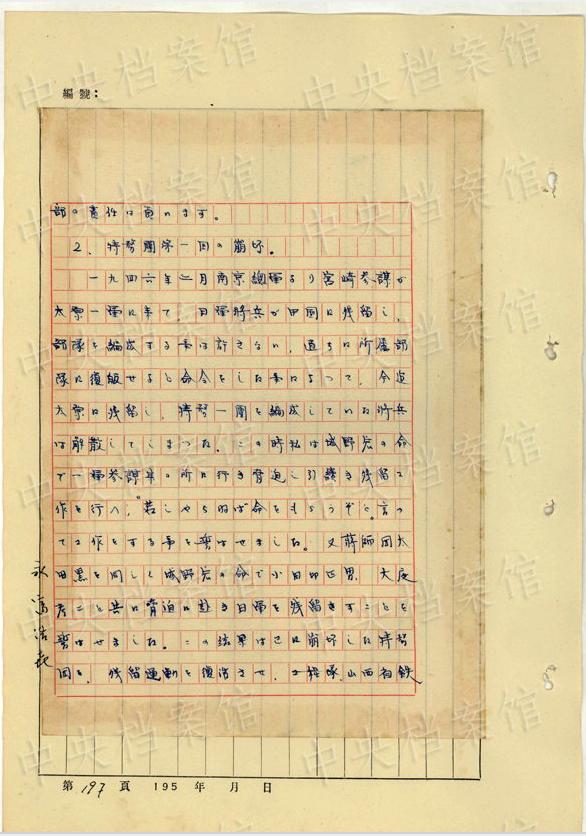 編號:
部の責任は負います。
2、特務團第一回の崩坏。
一九四六年三月南京總軍より宮崎参謀が
太原一軍に来て、日軍将兵が中国に残留し、
部隊を編成する事は許さない、直ちに所属部
隊に復皈せよと命令をした事によつて、今迄
太原に残留し、特務一團を編成していた将兵
は解散してしまつた。この時私は城野宏の命
で一軍参謀 の所に行き脅迫し引續き残留工
作を行へ、若しやらねば命をもらうぞと言つ
て工作をする事を誓はせました。又 師団太
田黒を同じく城野宏の命で小田切正男、大
 と共に脅迫に赴き日軍を残留さすことを
誓はせました。この結果は已に崩坏した特務
団を、残留運動を復活させ、工程隊、山西 鉄
永富浩喜
第197頁 195 年 月 日
中央档案馆